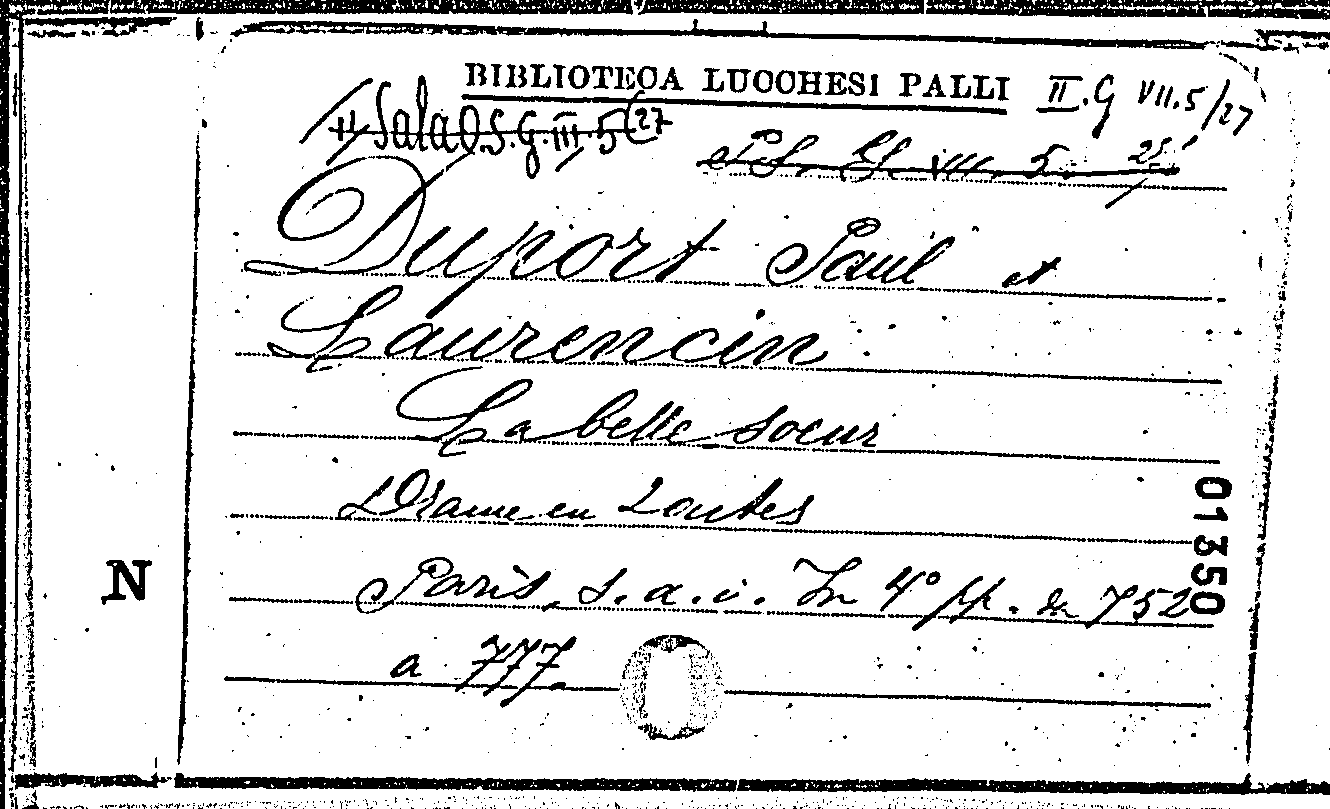 BIBLIOTECA LUCCHESI PALLI II.G VII.5/27
II Sala O.S.G.III.5(27
P.S. G. VII. 5. 25
Duport Paul et
Laurencin
La belle soeur
Drame en 2 actes
01350
N
Paris, s. a. i. In 4° pp. da 752
a 777.